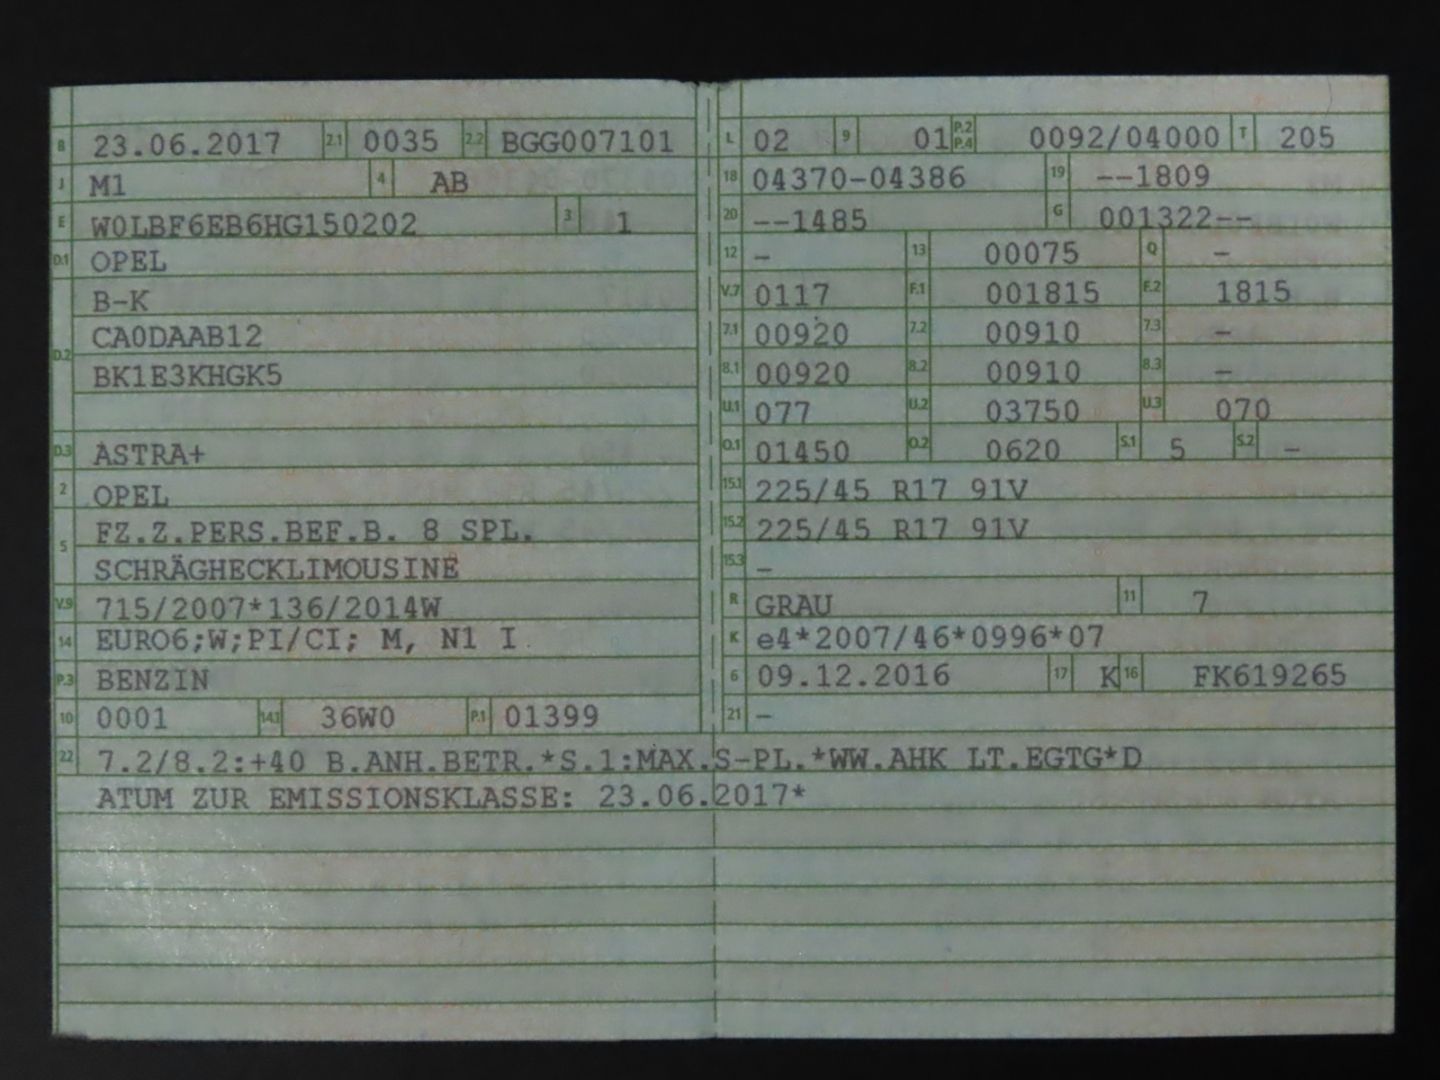 B 23.06.2017 2.1 0035 2.2 BGG007101
J M1 4 AB
E W0LBF6EB6HG150202 3 1
D.1 OPEL
B-K
D.2 CA0DAAB12
BK1E3KHGK5
D.3 ASTRA+
2 OPEL
5 FZ.Z.PERS.BEF.B. 8 SPL.
SCHRÄGHECKLIMOUSINE
V.9 715/2007*136/2014W
14 EURO6;W;PI/CI; M, N1 I
P.3 BENZIN
10 0001 14.1 36W0 P.1 01399
L 02 9 01 P.2 P.4 0092/04000 T 205
18 04370-04386 19 --1809
20 --1485 G 001322--
12 - 13 00075 Q -
V.7 0117 F.1 001815 F.2 1815
7.1 00920 7.2 00910 7.3 -
8.1 00920 8.2 00910 8.3 -
U.1 077 U.2 03750 U.3 070
O.1 01450 O.2 0620 S.1 5 S.2 -
15.1 225/45 R17 91V
15.2 225/45 R17 91V
15.3 -
R GRAU 11 7
K e4*2007/46*0996*07
6 09.12.2016 17 K 16 FK619265
21 -
22 7.2/8.2:+40 B.ANH.BETR.*S.1:MAX.S-PL.*WW.AHK LT.EGTG*D
ATUM ZUR EMISSIONSKLASSE: 23.06.2017*